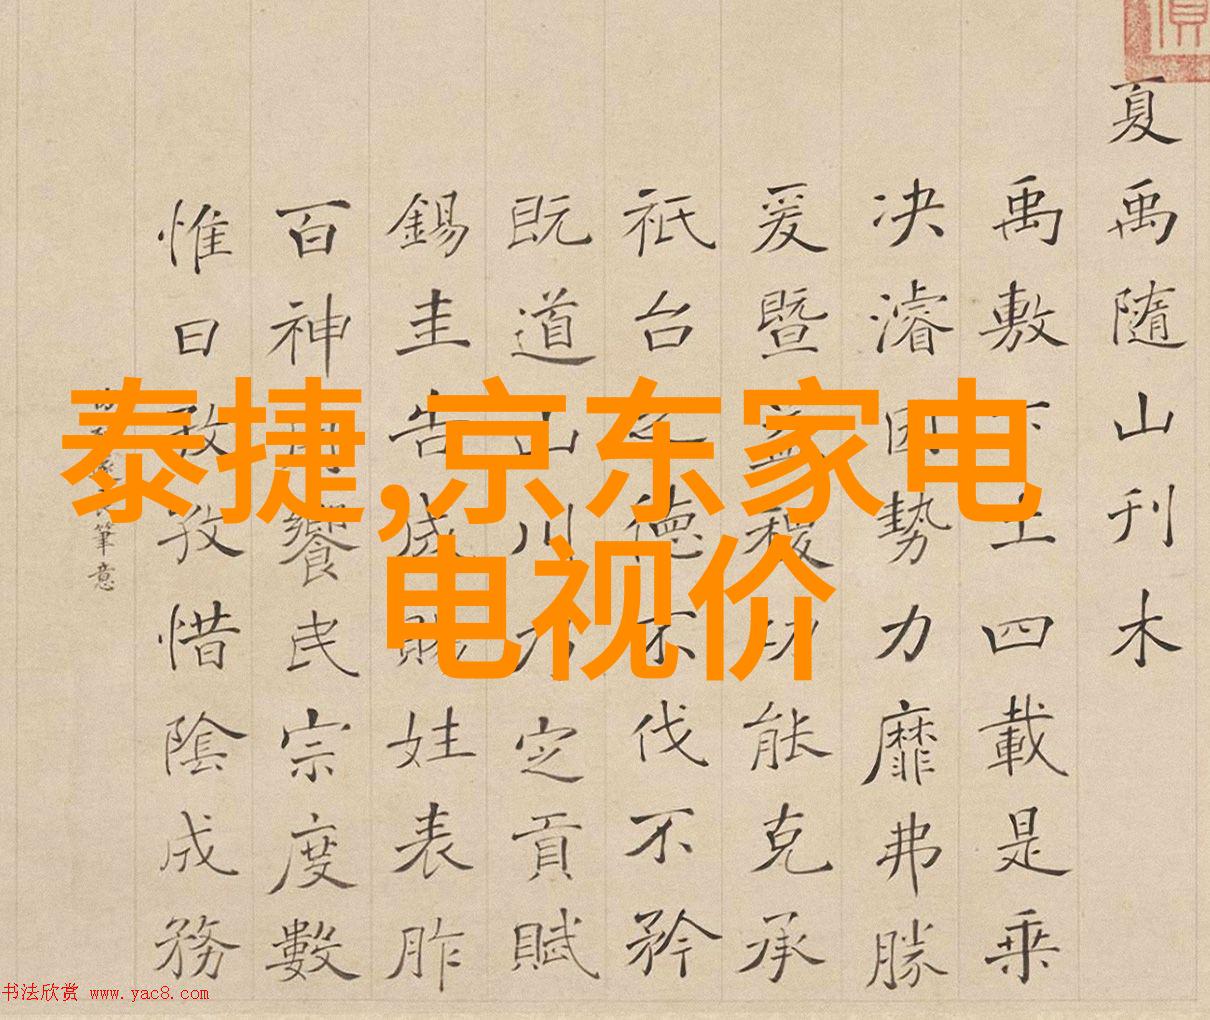 泰捷,京东家电
电视价
夏禹隨山刊木
禹敷下土四載是乘
决濬因勢力靡弗勝
爰暨稷功能克承
祇台德不伐不矜
既道山川定貢賦
錫圭告成賜姓表胙
百神饗民宗度數
惟日孜孜惜陰成務
筆意
书法欣赏 www.yac8.com